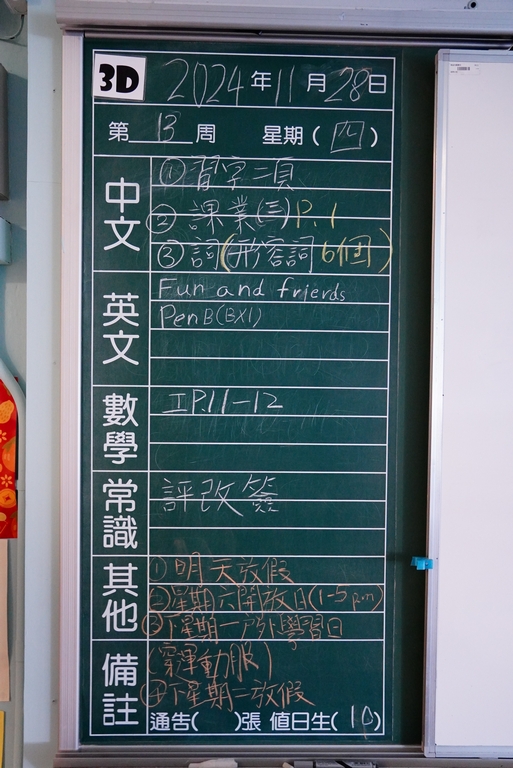 3D 2024年11月28日
第13周 星期(四)
中文
①習字二頁
②課業(三)P.1
③詞(形容詞6個)
英文
Fun and friends
PenB(BX1)
數學
工P.11-12
常識
評改簽
其他
①明天放假
②星期六開放日(1-5pm)
③下星期一戶外學習日
備註
(穿運動服)
④下星期二放假
通告( )張 值日生(10)